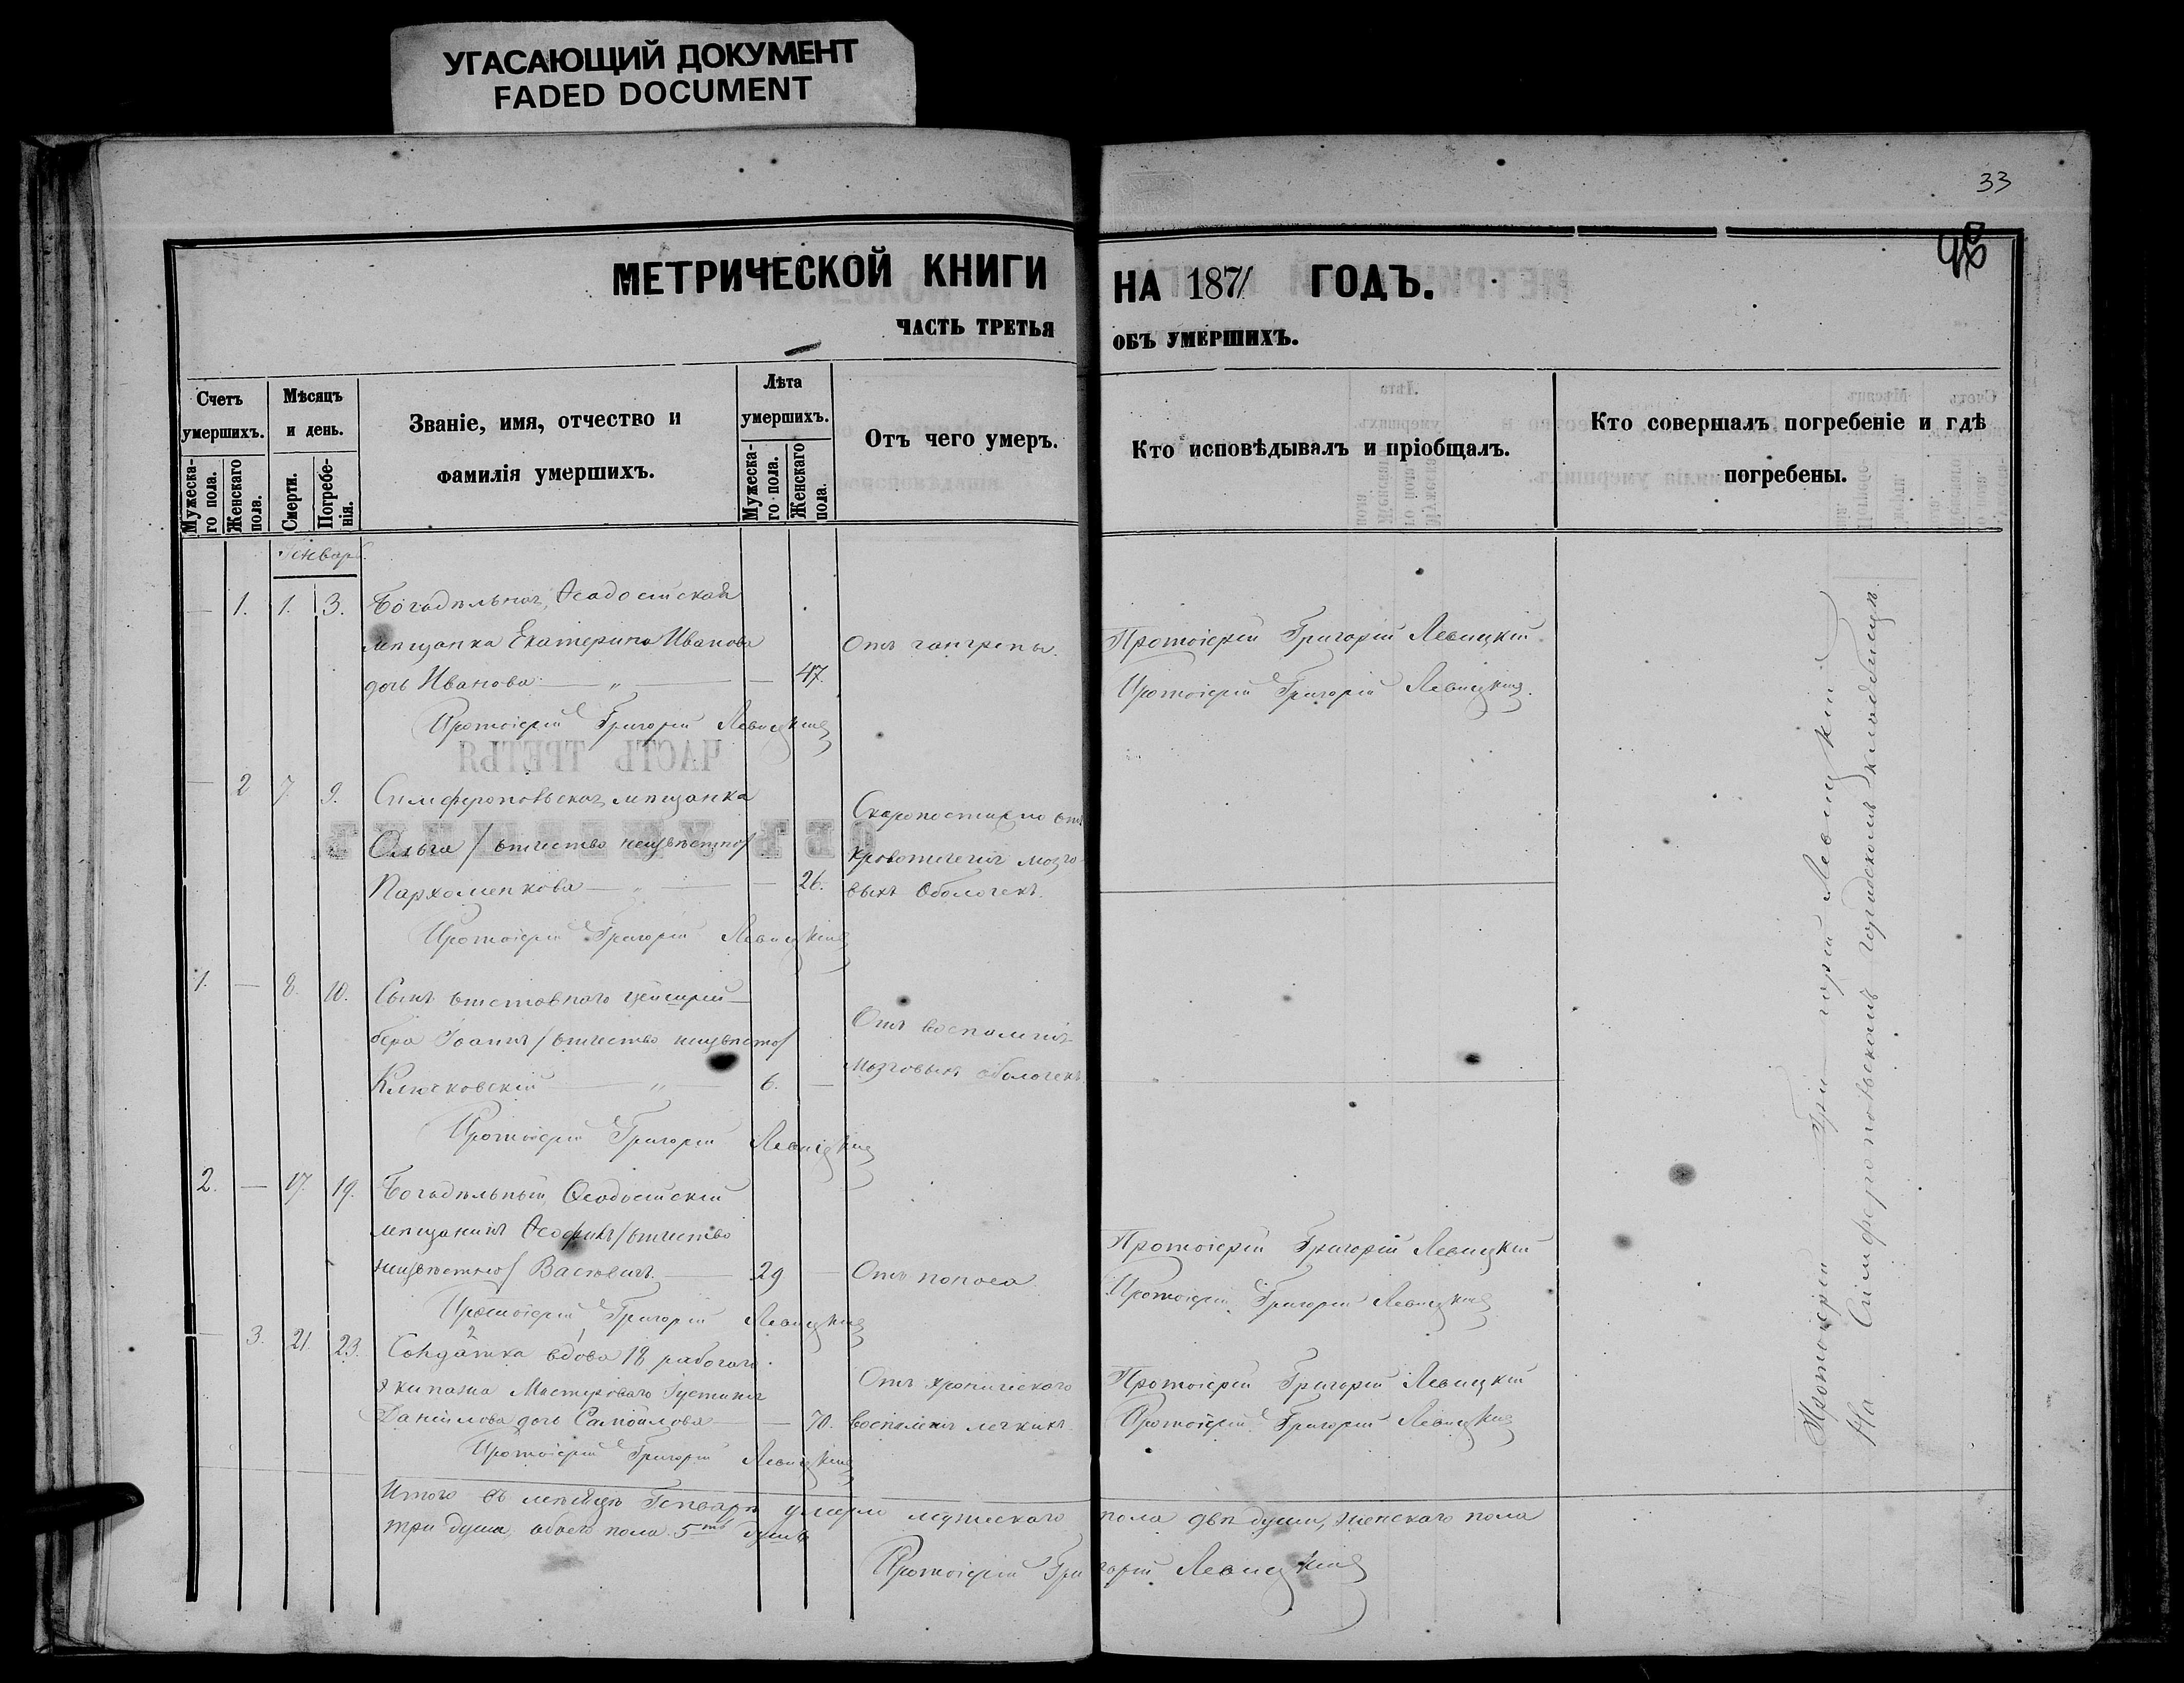 УГАСАЮЩИЙ ДОКУМЕНТ
FADED DOCUMENT
33
МЕТРИЧЕСКОЙ КНИГИ НА 1871 ГОДЪ.
ЧАСТЬ ТРЕТЬЯ ОБЪ УМЕРШИХЪ.
Счетъ умершихъ.
Мужеска-го пола.
Женскаго пола.
Мѣсяцъ и день.
Смерти.
Погребе-нія.
Званіе, имя, отчество и
фамилія умершихъ.
Лѣта умершихъ.
Мужеска-го пола.
Женскаго пола.
Отъ чего умеръ.
Кто исповѣдывалъ и пріобщалъ.
Кто совершалъ погребеніе и гдѣ
погребены.
Генварь.
— 1. 1. 3. Богадѣльная, Ѳеодосійская
мѣщанка Екатерина Иванова Отъ гангрены. Протоіерей Григорій Левицкій.
дочь Иванова — „ — — 47. Протоіерей Григорій Левицкій.
Протоіерей Григорій Левицкій
— 2 7. 9. Симферопольская мѣщанка
Ольга /отчество неизвѣстно/ Скоропостижно отъ
кровотеченія мозго-
Пархоменкова — „ — — 26. выхъ оболочекъ.
Протоіерей Григорій Левицкій
1. — 8. 10. Сынъ отставного
Іоаннъ /отчество неизвѣстно/ Отъ воспаленія
Ключковскій — „ — 6. — мозговыхъ оболочекъ.
Протоіерей Григорій Левицкій
2. — 17. 19. Богадѣльный Ѳеодосійскій
мѣщанинъ /отчество Протоіерей Григорій Левицкій
неизвѣстно/ — 29 — Отъ поноса Протоіерей Григорій Левицкій
Протоіерей Григорій Левицкій
— 3. 21. 23. Солдатка вдова 18 рабочаго
экипажа Мастероваго Іустинія Отъ хроническаго Протоіерей Григорій Левицкій
Данїилова дочь Самойлова — — 70. воспаленія легкихъ. Протоіерей Григорій Левицкій
Протоіерей Григорій Левицкій
Итого въ мѣсяцѣ Генварѣ умерло мужескаго пола двѣ души, женскаго пола
три души, обоего пола 5ть душъ
Протоіерей Григорій Левицкій
Протоіерей Григорій Левицкій
На Симферопольскомъ городскомъ кладбищѣ